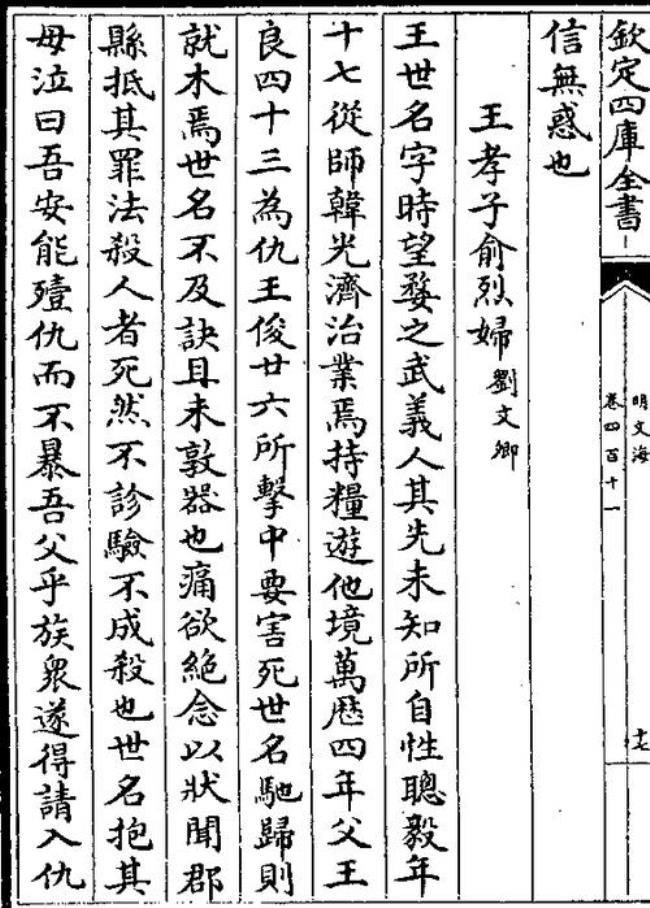 欽定四庫全書
明文海
卷四百十一
十七
信無惑也
王孝子俞烈婦 劉文卿
王世名字時望婺之武義人其先未知所自性聰毅年
十七從師韓光濟治業焉持糧遊他境萬厯四年父王
良四十三為仇王俊廿六所擊中要害死世名馳歸則
就木焉世名不及訣且未敦器也痛欲絶念以狀聞郡
縣抵其罪法殺人者死然不診驗不成殺也世名抱其
母泣曰吾安能殪仇而不暴吾父乎族衆遂得請入仇